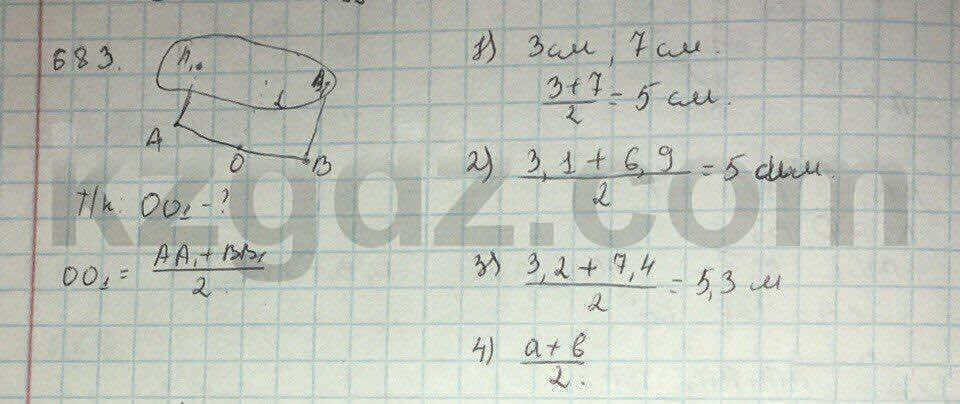 683.
A₁
B₁
A
O
B
Т/к. OO₁ - ?
OO₁ = (AA₁ + BB₁)/2
1) 3 см, 7 см.
(3+7)/2 = 5 см.
2) (3,1 + 6,9)/2 = 5 дм.
3) (3,2 + 7,4)/2 = 5,3 м
4) (a + b)/2.
kzgdz.com